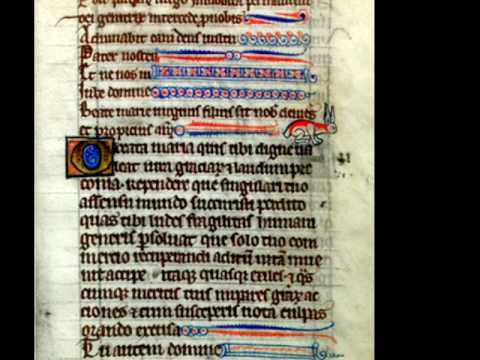 dei genitrix intercede pro nobis
Adiuuabit eam deus uultu
Pater noster
Et ne nos in
Iube domine
Beate marie uirginis filius sit nob clemēs
et propicius
O beata maria quis tibi digne ua
leat iura graciar et laudum pre
conia rependere que singulari tuo
assensu mundo succurristi perdito
quas tibi laudes fragilitas humani
generis psoluat que solo tuo com
mercio recuperandi aditum
accipe itaque quasque exiles et qs
cumque meritis tuis impares grax ac
ciones et cum susceperis uota culpas
orando excusa
Tu autem domine